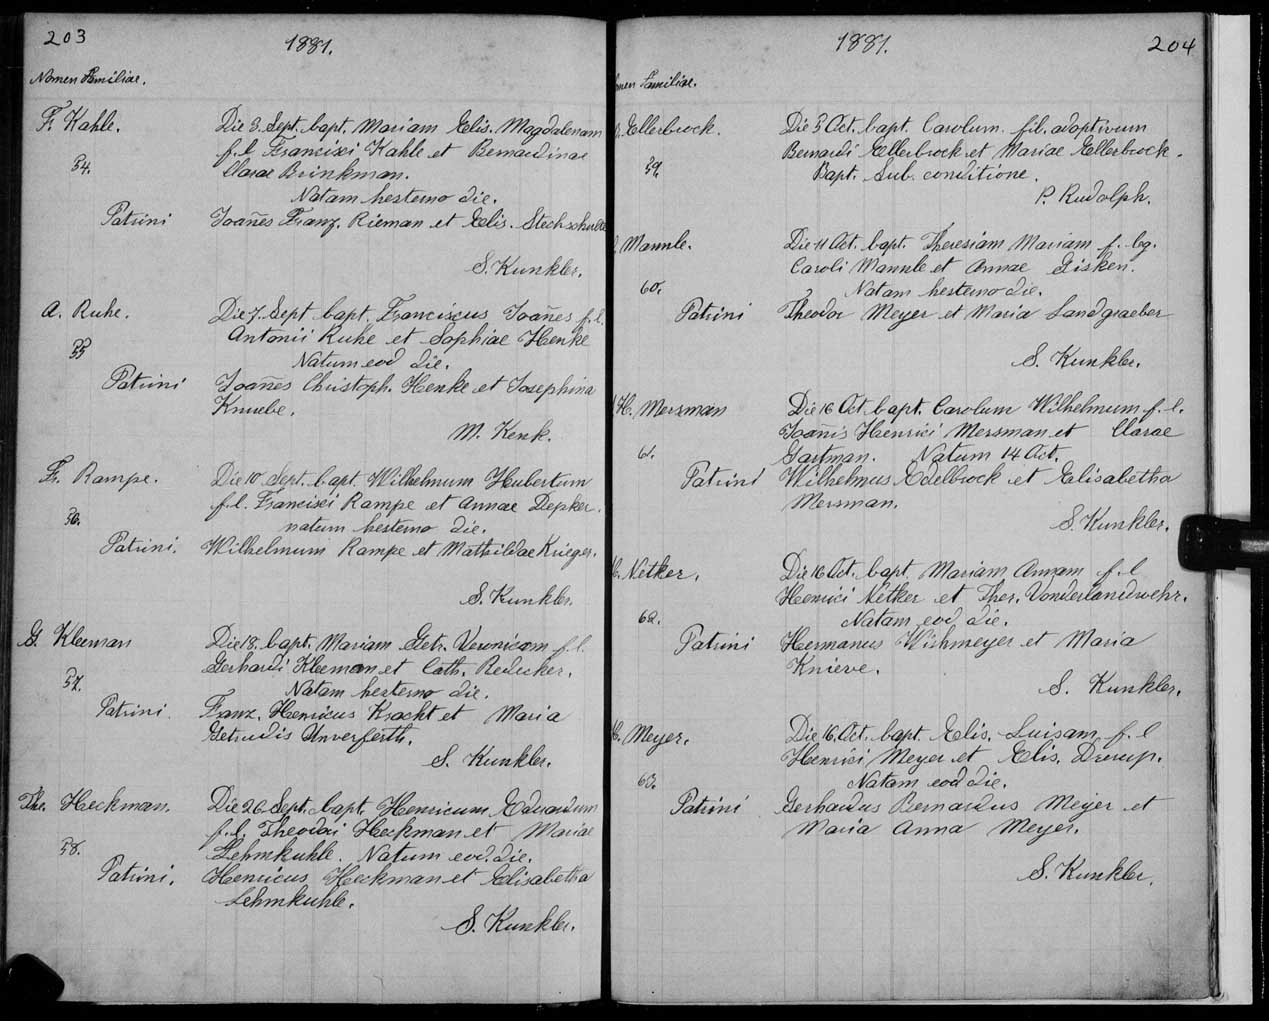 203
1881.
Nomen Familiae.
F. Kahle.
Die 3. Sept. bapt. Mariam Elis. Magdalenam
f. l. Francisci Kahle et Bernardinae
54.
Clarae Brinkman.
Natam hesterno die.
Patrini
Joañes Franz. Rieman et Elis. Stechschulte
S. Kunkler.
A. Ruhe.
Die 7. Sept. bapt. Franciscus Joañes f. l.
Antonii Ruhe et Sophiae Henke
55
Natum eod die.
Patrini
Joañes Christoph. Henke et Josephina
Knuebe.
M. Kenk.
Fr. Rampe.
Die 10 Sept. bapt. Wilhelmum Hubertum
f. l. Francisci Rampe et Annae Depker.
56.
natum hesterno die.
Patrini.
Wilhelmum Rampe et Mathildae Krieger.
S. Kunkler
G. Kleeman
Die 18. bapt. Mariam Getr. Veronicam f. l.
Gerhardi Kleeman et Cath. Redecker.
57.
Natam hesterno die.
Patrini.
Franz. Henricus Kracht et Maria
Getrudis Unverferth.
S. Kunkler.
Th. Heckman.
Die 26 Sept. bapt. Henricum Eduardum
f. l. Theodori Heckman et Mariae
58.
Lehmkuhle. Natum eod. die.
Patrini.
Henricus Heckman et Elisabetha
Lehmkuhle.
S. Kunkler.
1881.
204
men Familiae.
Ellerbrock.
Die 3 Oct. bapt. Carolum. fil. adoptivum
Bernardi Ellerbrock et Mariae Ellerbrock.
59.
Bapt. sub. conditione.
P. Rudolph.
Mannle.
Die 11 Oct. bapt. Theresiam Mariam f. lg.
Caroli Mannle et Annae Gisken.
60.
Natam hesterno die.
Patrini
Theodor Meyer et Maria Landgraeber
S. Kunkler.
H. Mersman
Die 16 Oct. bapt. Carolum Wilhelmum f. l.
Joañis Heinrici Mersman et Clarae
61.
Gartman. Natum 14 Oct.
Patrini
Wilhelmus Edelbrock et Elisabetha
Mersman.
S. Kunkler.
H. Netker.
Die 16 Oct. bapt. Mariam Annam f. l
Heenrici Netker et Ther. Vonderlandwehr.
62.
Natam eod die.
Patrini
Hermanus Wichmeyer et Maria
Knieve.
S. Kunkler.
H. Meyer.
Die 16. Oct. bapt. Elis. Luisam f. l
Heenrici Meyer et Elis. Drerup.
63.
Natam eod die.
Patrini
Gerhardus Bernardus Meyer et
Maria Anna Meyer.
S. Kunkler.